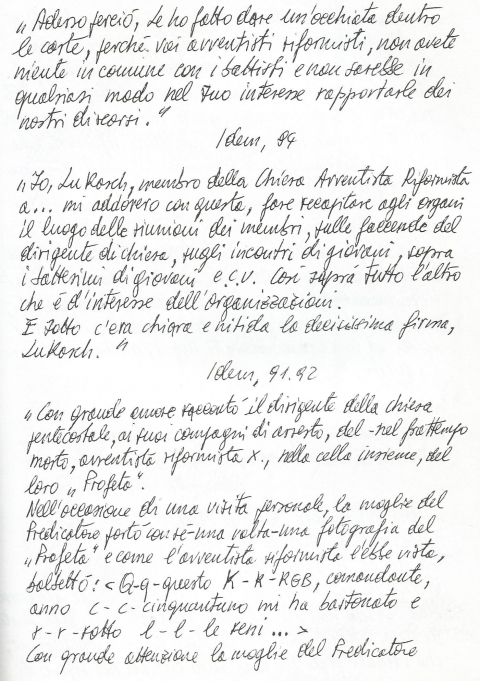 „ Adesso perciò, Le ho fatto dare un'occhiata dentro
le carte, perché voi avventisti riformisti, non avete
niente in comune con i battisti e non sarebbe in
qualsiasi modo nel suo interesse rapportarle dei
nostri discorsi. “
Idem, 94
„ Io, Lu Rosch, membro della Chiesa Avventista Riformista
a... mi addovero con questa, fare recapitare agli organi
il luogo delle riunioni dei membri, sulle faccende del
dirigente di chiesa, sugli incontri di giovani, sopra
i battesimi di giovani e.c.v. Così soprá tutto l'altro
che é d'interesse dell'organizzazioni.
E sotto c'era chiara e nitida la decisissima firma,
Lu Rosch. “
Idem, 91.92
„ Con grande amore raccontó il dirigente della chiesa
pentecostale, ai suoi compagni di arresto, del -nel frattempo
morto, avventista riformista X., nella cella insieme, del
loro „ Profeta“.
Nell'occasione di una visita personale, la moglie del
Predicatore portó con sé-una volta-una fotografia del
„Profeta“ e come l'avventista riformista l'ebbe vista,
balbettó: < Q-q-questo K-K-KGB, comandante,
anno c-c-cinquantuno mi ha bastonato e
r-r-rotto l-l-le reni... >
Con grande attenzione la moglie del Predicatore